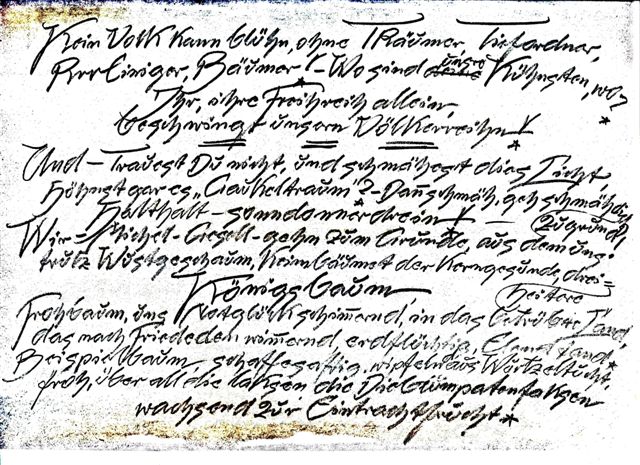 Kein Volk kann blühn, ohne Träumer, Tiefordner,
Rrreiniger, Bäumer! – Wo sind unsre Kühnsten, wo?
Ihr, ihre Freihreich allein,
beschwingt unsern Völkerreihn!
Und – Trauest Du nicht, und schmähest dies Licht
höhnst gar es „Gaukeltraum"? – Dann schmäh, geh schmählich
Halthalt – sonndonnerdrein! – zugrund!
Wir – Michel – Gesell – gehn zum Grunde, aus dem uns
trutz Wüstgeschaum, keimbäumet der Kerngesunde, drei-
heitere
Königsbaum
Frohbaum, uns schimmernd, in das betrübte Land,
das nach Friede wimmernd, erdflüchtig, Elend fand
Beispielbaum schaffesaftig, wipfelnd aus Wurzelzucht,
froh, über all die die
wachsend zur Eintrachtfrucht